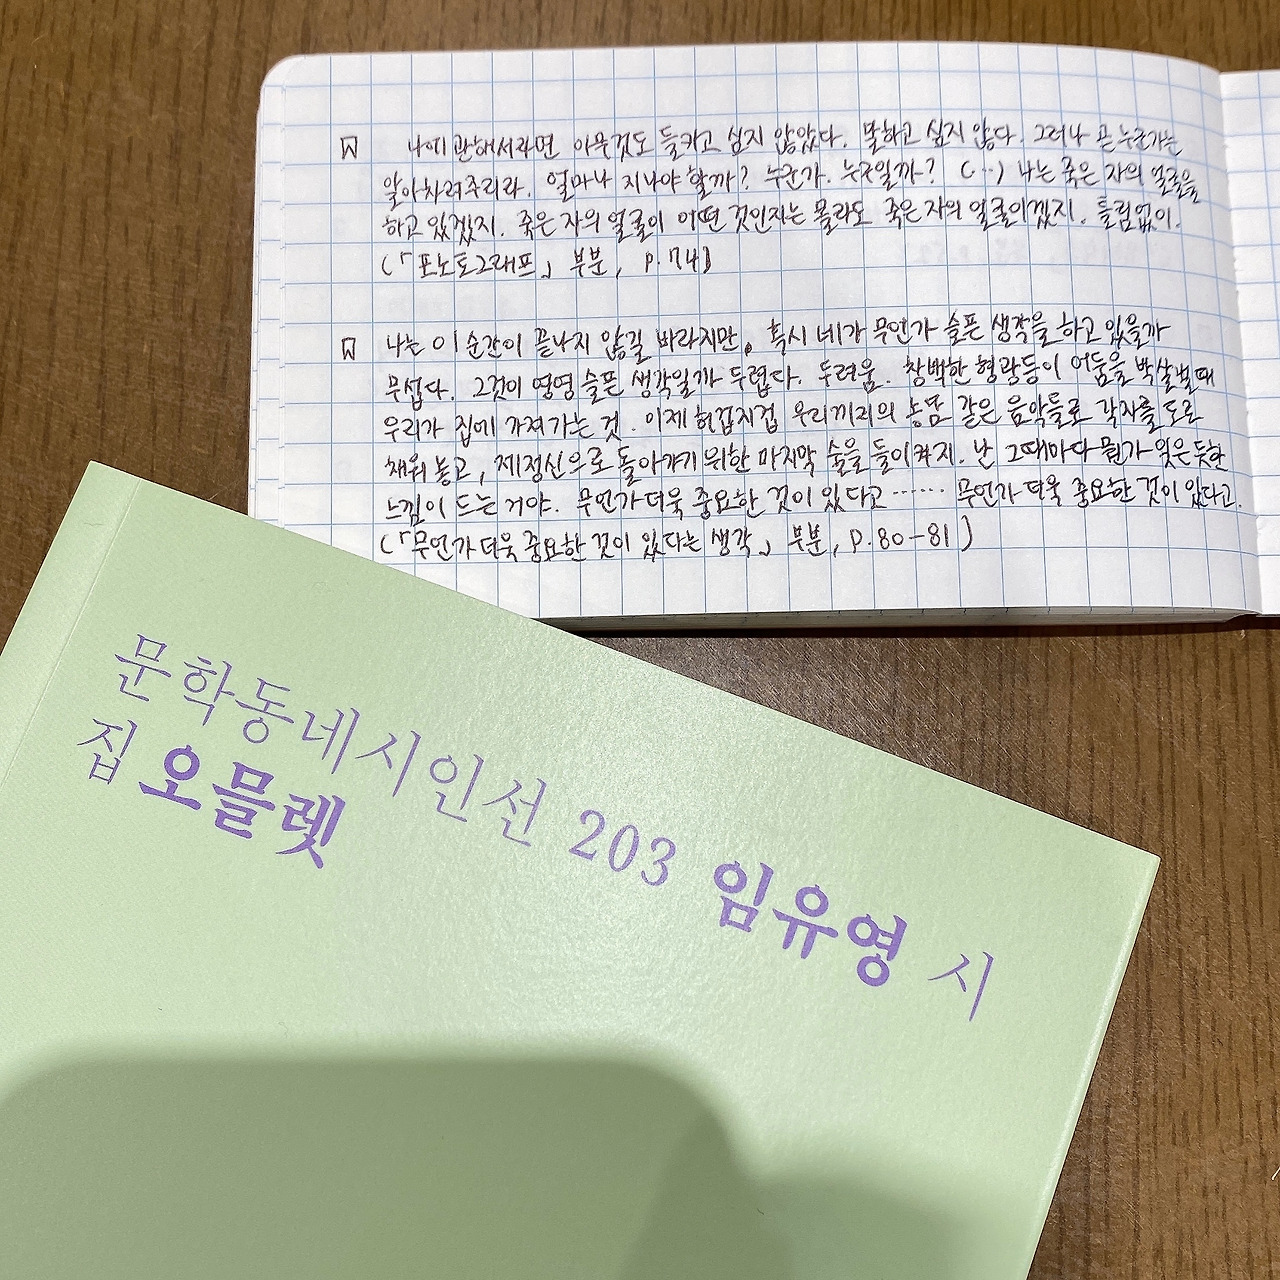 나에 관해서라면 아무것도 들키고 싶지 않았다. 말하고 싶지 않다. 그러나 곧 누군가는
알아차려주리라. 얼마나 지나야 할까? 누군가. 누구일까? (…) 나는 죽은 자의 얼굴을
하고 있겠지. 죽은 자의 얼굴이 어떤 것인지는 몰라도 죽은 자의 얼굴이겠지. 틀림없이.
(「포노토그래프」 부분, p.74)
나는 이 순간이 끝나지 않길 바라지만, 혹시 네가 무언가 슬픈 생각을 하고 있을까
무섭다. 그것이 영영 슬픈 생각일까 두렵다. 두려움. 창백한 형광등이 어둠을 박살낼 때
우리가 집에 가져가는 것. 이제 허겁지겁 우리끼리의 농담 같은 음악들로 각자를 도로
채워 놓고, 제정신으로 돌아가기 위한 마지막 술을 들이켜지. 난 그때마다 뭔가 잊은 듯한
느낌이 드는 거야. 무언가 더욱 중요한 것이 있다고…… 무언가 더욱 중요한 것이 있다고.
(「무언가 더욱 중요한 것이 있다는 생각」 부분, p.80-81)
문학동네시인선 203 임유영 시
집 오믈렛